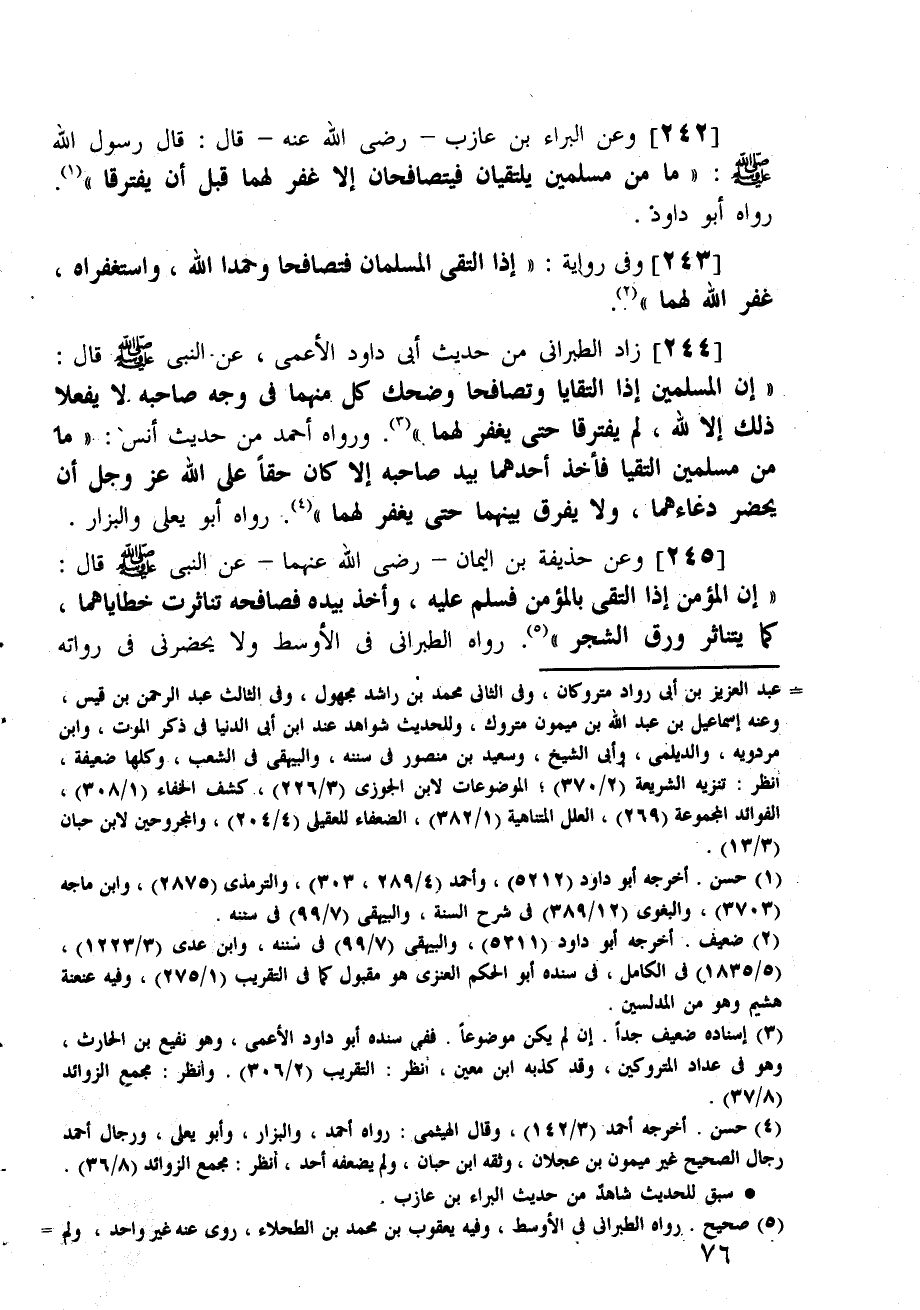 [٢٤٢] وعن البراء بن عازب – رضى الله عنه – قال : قال رسول الله
ﷺ : « ما من مسلمين يلتقيان فيتصافحان إلا غفر لهما قبل أن يفترقا »(١).
رواه أبو داود .
[٢٤٣] وفى رواية : « إذا التقى المسلمان فتصافحا وحمدا الله ، واستغفراه ،
غفر الله لهما »(٢).
[٢٤٤] زاد الطبرانى من حديث أبى داود الأعمى ، عن النبى ﷺ قال :
« إن المسلمين إذا التقايا وتصافحا وضحك كل منهما فى وجه صاحبه لا يفعلا
ذلك إلا لله ، لم يفترقا حتى يغفر لهما »(٣). ورواه أحمد من حديث أنس : « ما
من مسلمين التقيا فأخذ أحدهما بيد صاحبه إلا كان حقاً على الله عز وجل أن
يحضر دعاءهما ، ولا يفرق بينهما حتى يغفر لهما »(٤). رواه أبو يعلى والبزار .
[٢٤٥] وعن حذيفة بن اليمان – رضى الله عنهما – عن النبى ﷺ قال :
« إن المؤمن إذا التقى بالمؤمن فسلم عليه ، وأخذ بيده فصافحه تناثرت خطاياهما ،
كما يتناثر ورق الشجر »(٥). رواه الطبرانى فى الأوسط ولا يحضرنى فى رواته
= عبد العزيز بن أبى رواد متروكان ، وفى الثانى محمد بن راشد مجهول ، وفى الثالث عبد الرحمن بن قيس ،
وعنه إسماعيل بن عبد الله بن ميمون متروك ، وللحديث شواهد عند ابن أبى الدنيا فى ذكر الموت ، وابن
مردويه ، والديلمى ، وأبى الشيخ ، وسعيد بن منصور فى سننه ، والبيهقى فى الشعب ، وكلها ضعيفة ،
أنظر : تنزيه الشريعة (٣٧٠/٢) ؛ الموضوعات لابن الجوزى (٢٢٦/٣) ، كشف الخفاء (٣٠٨/١) ،
الفوائد المجموعة (٢٦٩) ، العلل المتناهية (٣٨٢/١) ، الضعفاء للعقيلى (٢٠٤/٤) ، والمجروحين لابن حبان
(١٣/٣) .
(١) حسن . أخرجه أبو داود (٥٢١٢) ، وأحمد (٢٨٩/٤ ، ٣٠٣) ، والترمذى (٢٨٧٥) ، وابن ماجه
(٣٧٠٣) ، والبغوى (٣٨٩/١٢) فى شرح السنة ، والبيهقى (٩٩/٧) فى سننه .
(٢) ضعيف . أخرجه أبو داود (٥٢١١) ، والبيهقى (٩٩/٧) فى سننه ، وابن عدى (١٢٢٣/٣) ،
(١٨٣٥/٥) فى الكامل ، فى سنده أبو الحكم العنزى هو مقبول كما فى التقريب (٢٧٥/١) ، وفيه عنعنة
هشيم وهو من المدلسين .
(٣) إسناده ضعيف جداً . إن لم يكن موضوعاً . ففى سنده أبو داود الأعمى ، وهو نفيع بن الحارث ،
وهو فى عداد المتروكين ، وقد كذبه ابن معين ، أنظر : التقريب (٣٠٦/٢) . وأنظر : مجمع الزوائد
(٣٧/٨) .
(٤) حسن . أخرجه أحمد (١٤٢/٣) ، وقال الهيثمى : رواه أحمد ، والبزار ، وأبو يعلى ، ورجال أحمد
رجال الصحيح غير ميمون بن عجلان ، وثقه ابن حبان ، ولم يضعفه أحد ، أنظر : مجمع الزوائد (٣٦/٨) .
● سبق للحديث شاهدٌ من حديث البراء بن عازب .
(٥) صحيح . رواه الطبرانى فى الأوسط ، وفيه يعقوب بن محمد بن الطحلاء ، روى عنه غير واحد ، ولم =
٧٦